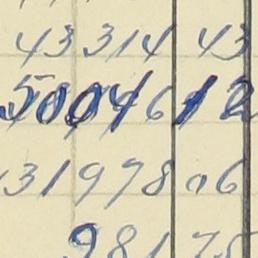 43314 43
50046 12
31978 06
981 75